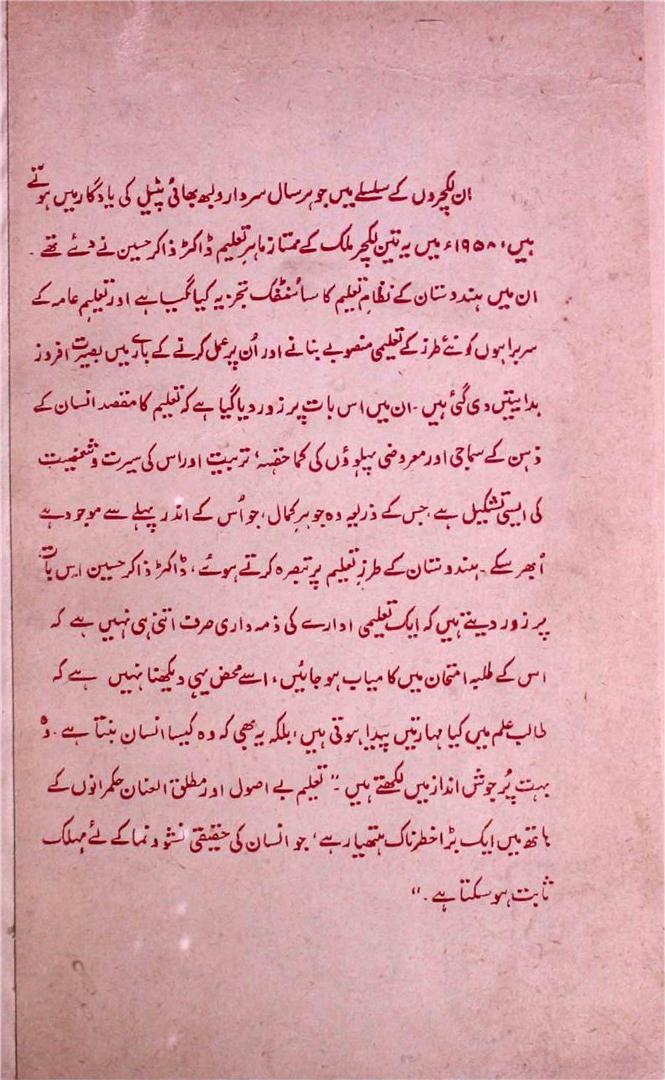 ان لکچروں کے سلسلے میں جو ہر سال سردار ولبھ بھائی پٹیل کی یادگار میں ہوتے
ہیں، ۱۹۵۸ء میں یہ تین لکچر ملک کے ممتاز ماہر تعلیم ڈاکٹر ذاکر حسین نے دئے تھے۔
ان میں ہندوستان کے نظامِ تعلیم کا سائنٹفک تجزیہ کیا گیا ہے اور تعلیم عامہ کے
سربراہوں کو نئے طرز کے تعلیمی منصوبے بنانے اور اُن پر عمل کرنے کے بارے میں بصیرت افروز
ہدایتیں دی گئی ہیں۔ ان میں اس بات پر زور دیا گیا ہے کہ تعلیم کا مقصد انسان کے
ذہن کے سماجی اور معروضی پہلوؤں کی کما حقہ، تربیت اور اس کی سیرت و شخصیت
کی ایسی تشکیل ہے، جس کے ذریعہ وہ جوہرِ کمال، جو اُس کے اندر پہلے سے موجود ہے
اُبھر سکے۔ ہندوستان کے طرزِ تعلیم پر تبصرہ کرتے ہوئے، ڈاکٹر ذاکر حسین اس بات
پر زور دیتے ہیں کہ ایک تعلیمی ادارے کی ذمہ داری صرف اتنی ہی نہیں ہے کہ
اس کے طلبہ امتحان میں کامیاب ہو جائیں، اسے محض یہی دیکھنا نہیں ہے کہ
طالب علم میں کیا مہارتیں پیدا ہوتی ہیں، بلکہ یہ بھی کہ وہ کیسا انسان بنتا ہے۔ وہ
بہت پُرجوش انداز میں لکھتے ہیں۔ "تعلیم بے اصول اور مطلق العنان حکمرانوں کے
ہاتھ میں ایک بڑا خطرناک ہتھیار ہے، جو انسان کی حقیقی نشوونما کے لئے مہلک
ثابت ہو سکتا ہے۔"